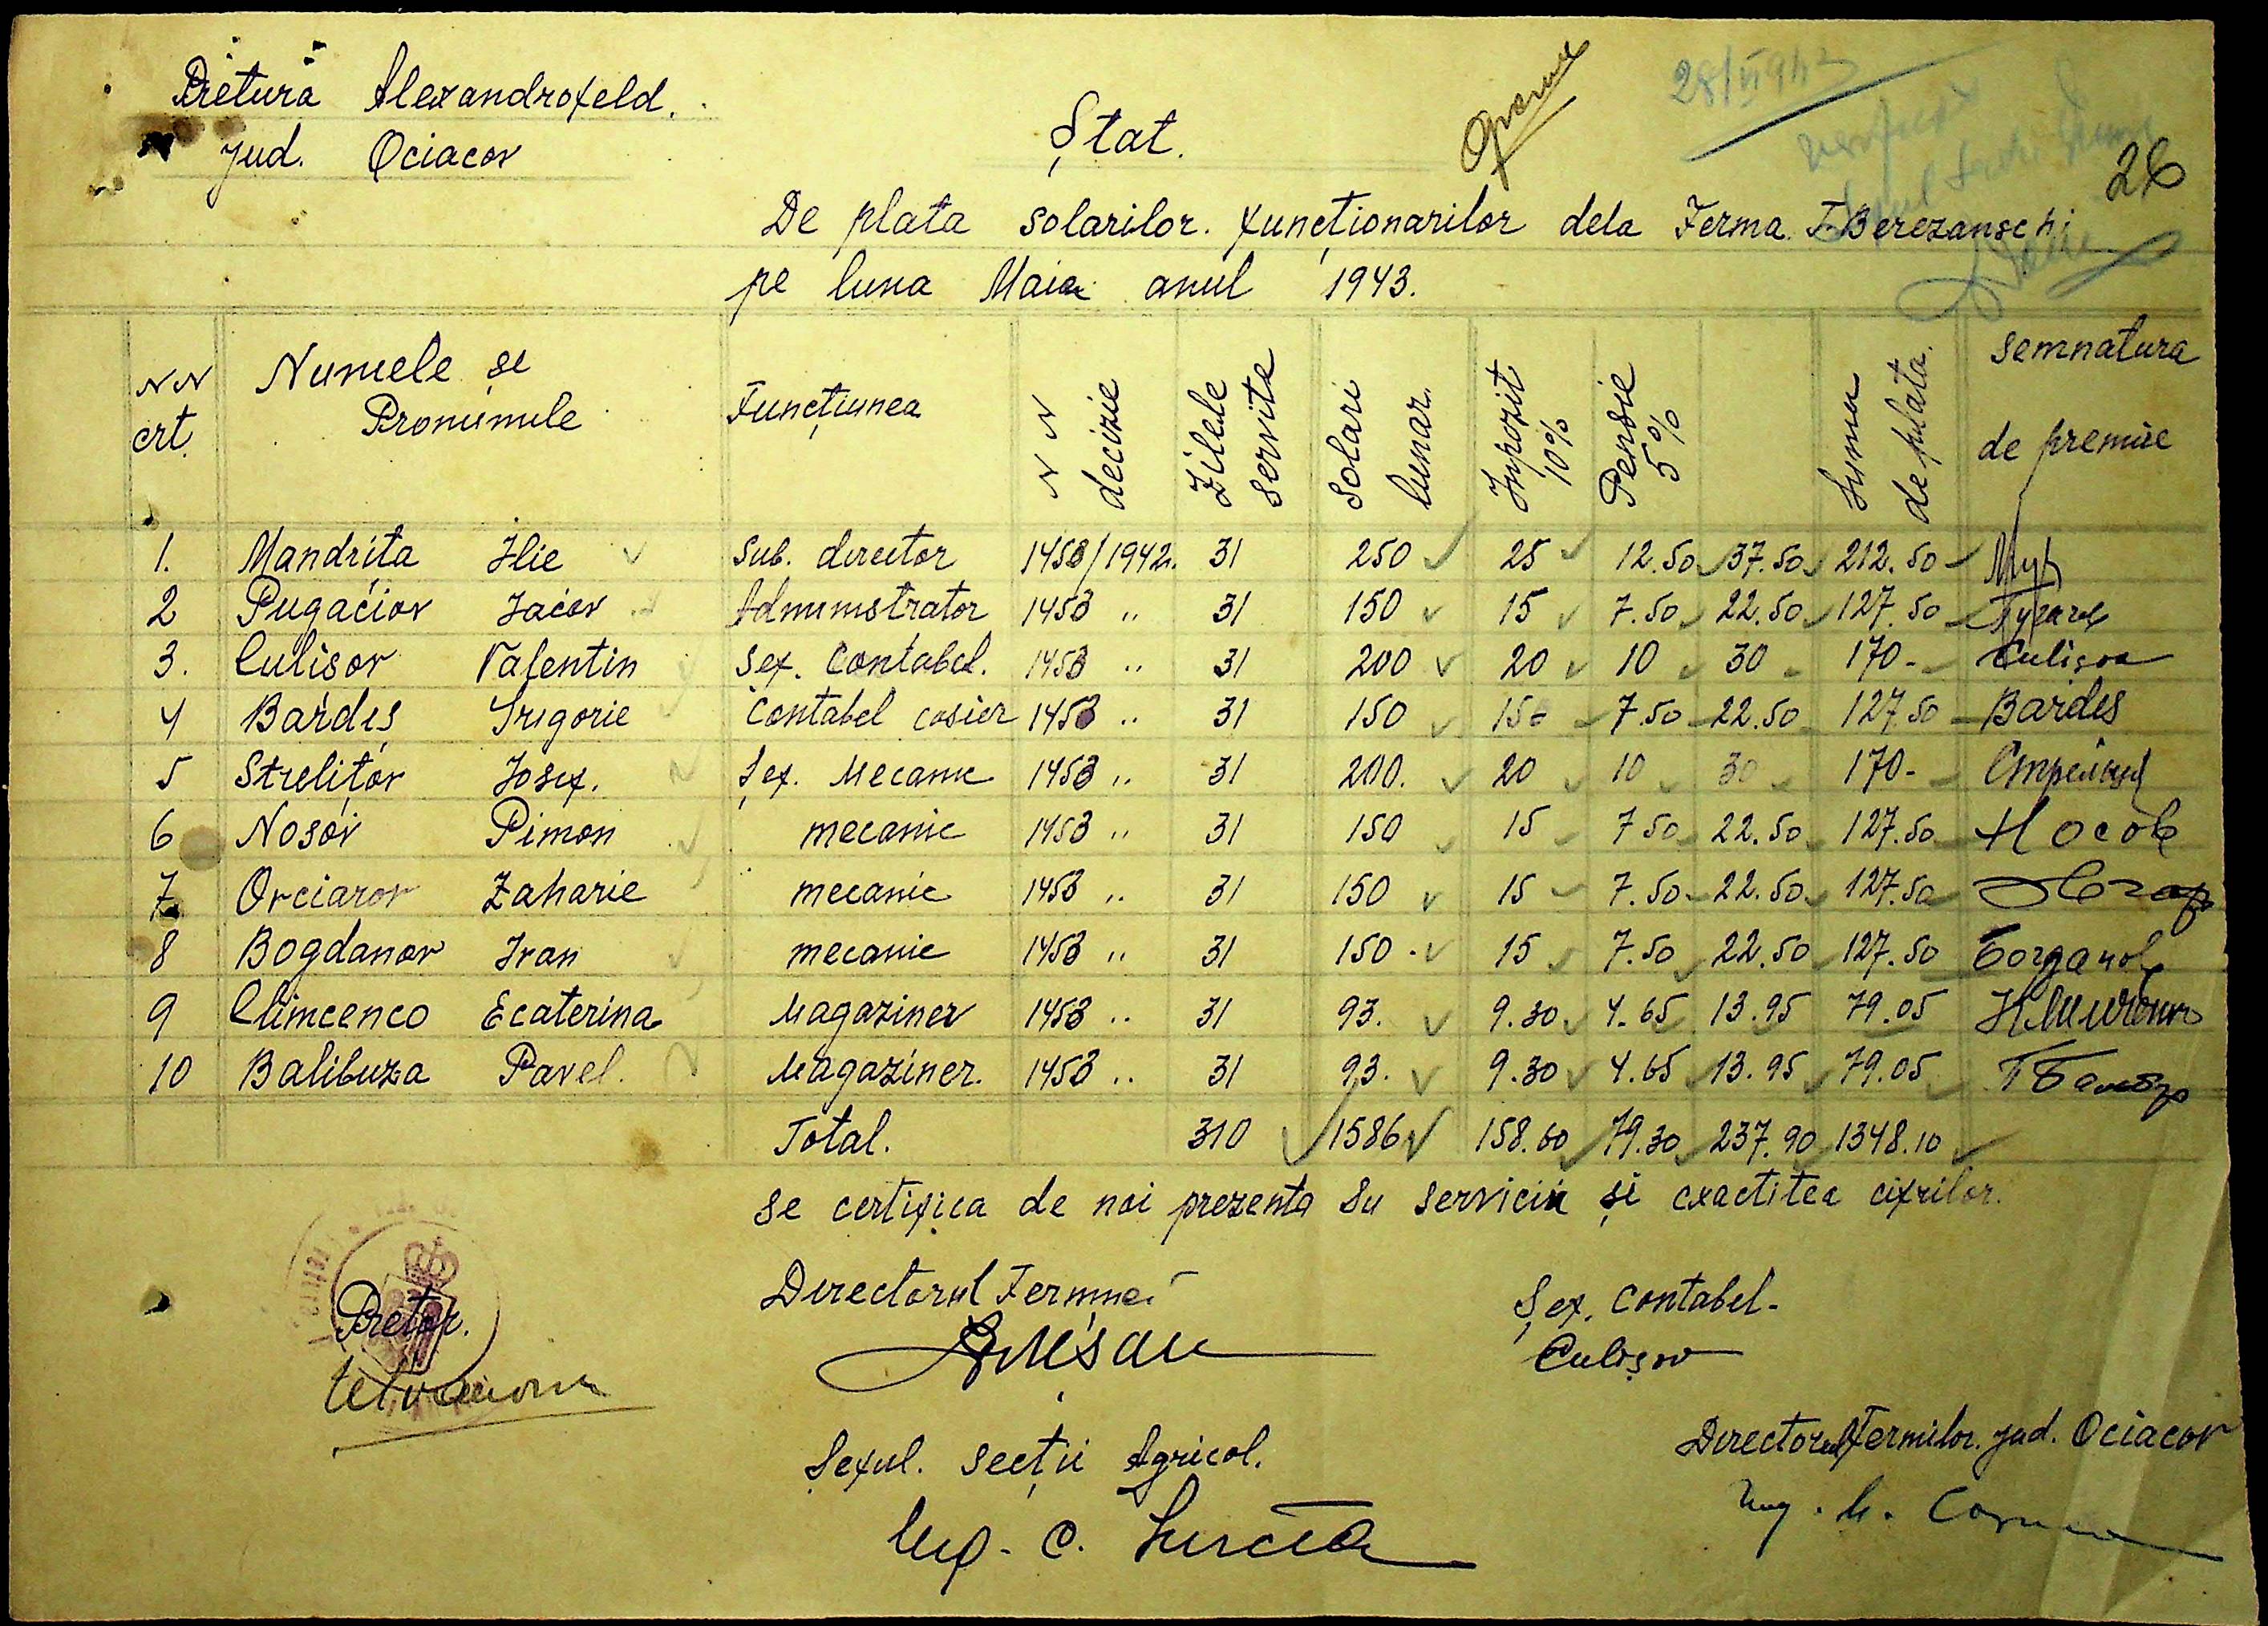 Pretura Alexandrofeld.
Jud. Ociacov
Ștat.
28/VI 943
26
De plata solarilor. funcționarilor dela Ferma T. Berezanschi
pe luna Maia anul 1943.
NN crt. Numele se Pronumule Funcțiunea NN decizie Zilele servite Solari lunar. Inpozit 10% Pensie 5% Suma de plata. Semnatura de premiie
1. Mandrița Ilie Sub. director 1453/1942. 31 250 25 12.50 37.50 212.50
2 Pugaciov Iacov Administrator 1453 " 31 150 15 7.50 22.50 127.50
3. Culisov Valentin Șef. Contabel. 1453 " 31 200 20 10 30 170- Culisov
4 Bardiș Grigorie Contabel casier 1453 " 31 150 15- 7.50 22.50 127.50 Bardes
5 Strelițov Iosif. Șef. Mecanic 1453 " 31 200. 20 10 30 170-
6 Nosov Pimon mecanic 1453 " 31 150 15 7.50 22.50 127.50 Носов
7 Ovciarov Zaharie mecanic 1453 " 31 150 15 7.50 22.50 127.50
8 Bogdanov Ivan mecanic 1453 " 31 150. 15 7.50 22.50 127.50 Богданов
9 Climcenco Ecaterina Magaziner 1453 " 31 93. 9.30 4.65 13.95 79.05
10 Balibuza Pavel. Magaziner. 1453 " 31 93. 9.30 4.65 13.95 79.05
Total. 310 1586 158.60 79.30 237.90 1348.10
se certifica de noi prezenta su serviciu și exactitea cifrilor.
Pretor.
Directorul Fermnei
Șef. Contabel-
Culișov
Șeful. secții Agricol.
Directorul fermilor. jud. Ociacov
Ing. C.
Ing. M.